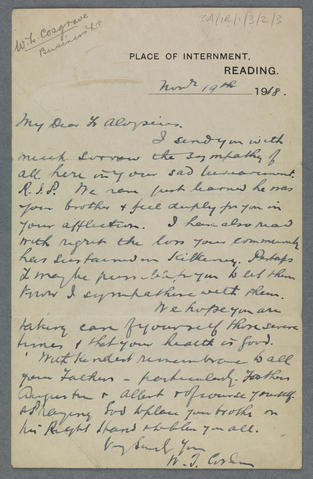 W. L. Cosgrave
Business
CA/IR/1/3/2/3
PLACE OF INTERNMENT,
READING.
Novr 19th 1918.
My Dear Fr Aloysius.
I send you with
much sorrow the sympathy of
all here in your sad bereavement.
R.I.P. We have just learned he was
your brother & feel deeply for you in
your affliction. I have also read
with regret the loss your community
has sustained in Kilkenny. Perhaps
it may be possible for you to let them
know I sympathise with them.
We hope you are
taking care of yourself these severe
times & that your health is good.
With kindest remembrance to all
your Fathers – particularly Fathers
Augustine & Albert & of course yourself
& Praying God to place your brother on
his Right Hand & to bless you all.
Very Sincerely Yours